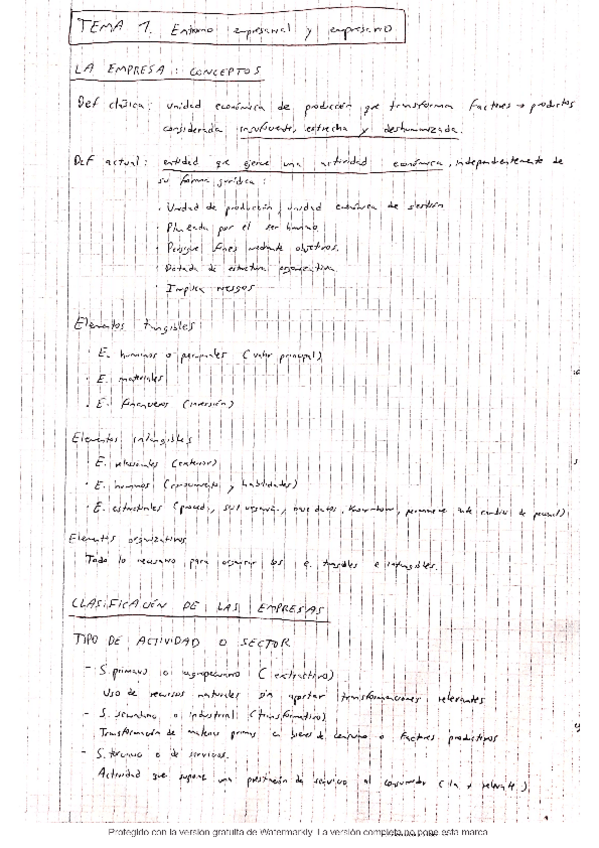 TEMA 1. Entorno empresarial y empresario
LA EMPRESA: CONCEPTOS
Def clásica: unidad económica de producción que transforma factores → productos
considerada insuficiente, estrecha y deshumanizada.
Def actual: entidad que ejerce una actividad económica, independientemente de
su forma jurídica:
· Unidad de producción, unidad económica de gestión
· Planeada por el ser humano
· Persigue fines mediante objetivos.
· Dotada de estructura organizativa
· Implica riesgos
Elementos tangibles
· E. humanos o personales (valor principal)
· E. materiales
· E. financieros (inversión)
Elementos intangibles
E. relacionales (exterior)
· E. humanos (conocimiento y habilidades)
· E. estructurales (proced., base datos, Know-how, permanece ante cambios de personal)
Elementos organizativos
Todo lo necesario para organizar los e. tangibles e intangibles.
CLASIFICACIÓN DE LAS EMPRESAS
TIPO DE ACTIVIDAD O SECTOR
- S. primario o agropecuario (extractivo)
Uso de recursos naturales sin aportar transformaciones relevantes
- S. secundario o industrial (transformativo)
Transformación de materias primas en bienes de consumo o factores productivos
- S. terciario o de servicios.
Actividad que supone una prestación de servicio al consumidor (la + relevante)
Protegido con la versión gratuita de Watermarkly. La versión completa no pone esta marca